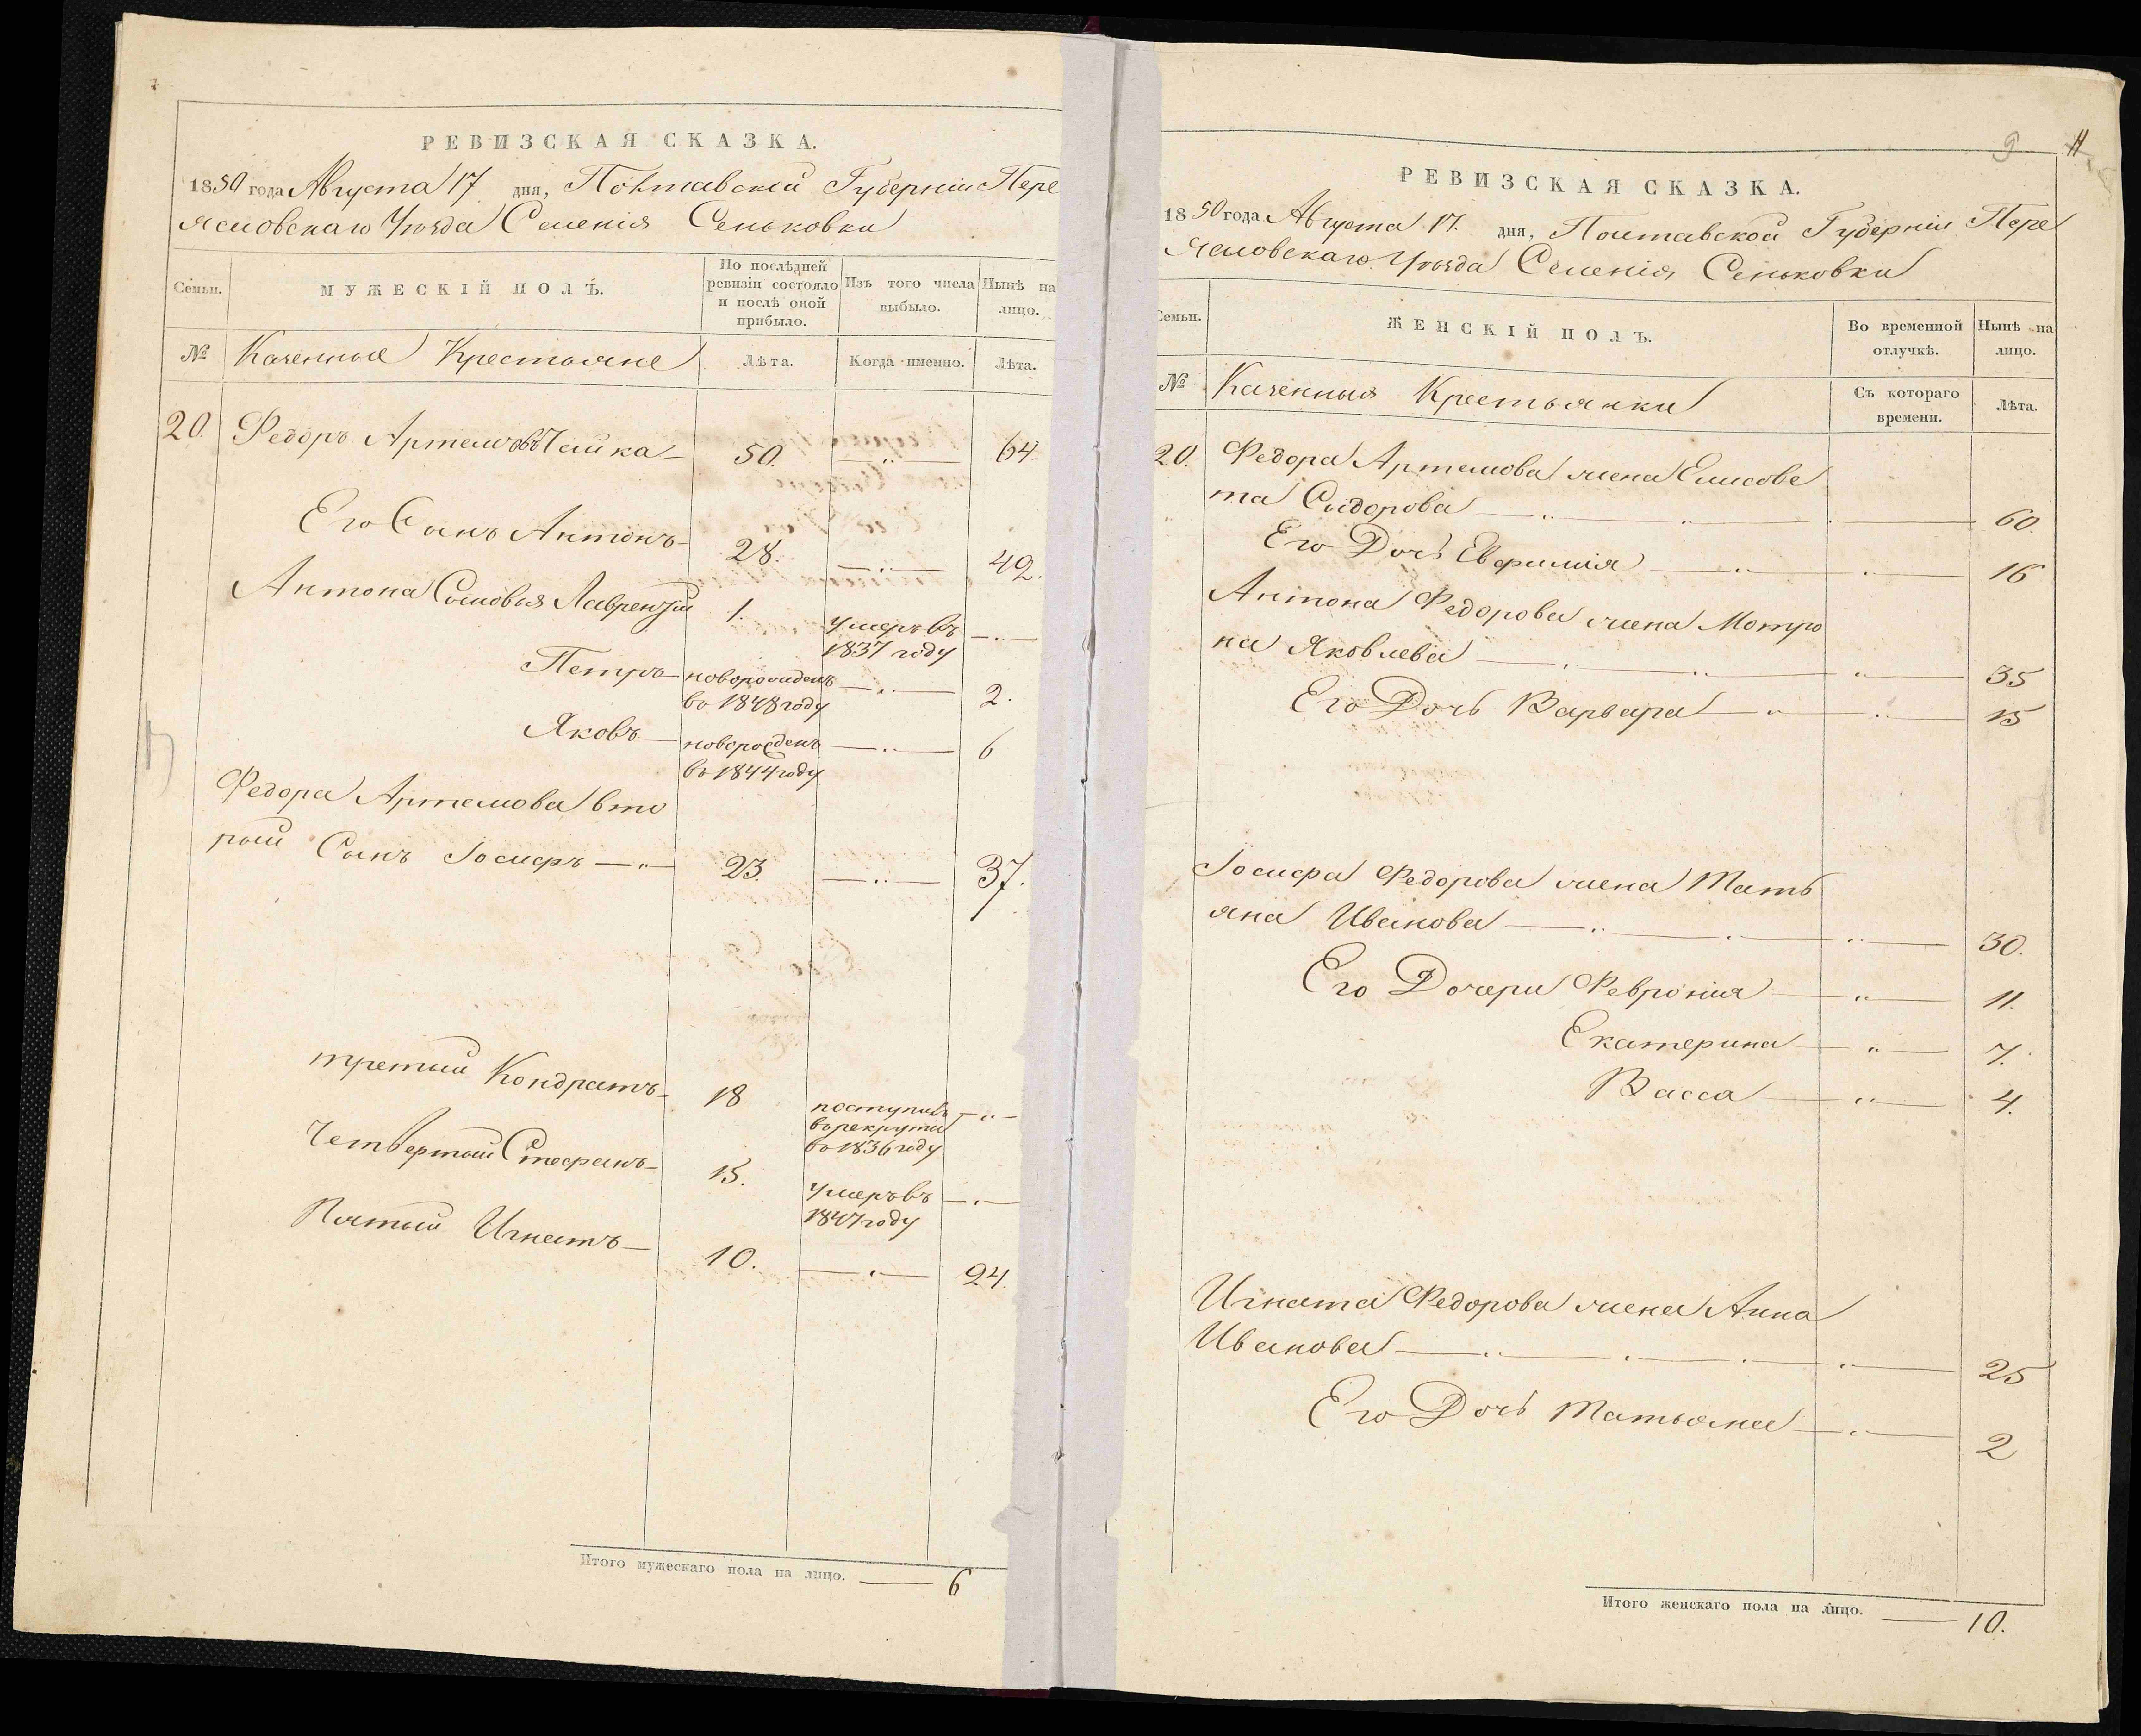 РЕВИЗСКАЯ СКАЗКА.
1850 года Августа 17 дня, Полтавской Губерніи Пере
яславскаго Уѣзда Селенія Сеньковки
Семьи.
МУЖЕСКІЙ ПОЛЪ.
По послѣдней ревизіи состояло и послѣ оной прибыло.
Изъ того числа выбыло.
Нынѣ на лицо.
№
Казенные Крестьяне
Лѣта.
Когда именно.
Лѣта.
20. Федоръ Артемовъ Чайка 50. 64
Его Сынъ Антонъ 28. 42.
Антона Сыновья Лаврентій 1. умеръ въ
1837 году
Петръ новорожденъ 2.
въ 1848 году
Яковъ новорожденъ 6
въ 1844 году
Федора Артемова вто
рый Сынъ Іосифъ 23. 37.
третий Кондратъ 18 поступилъ
в рекруты
въ 1836 году
Четвертый Стефанъ 15. умеръ въ
1847 году
Пятый Игнатъ 10. 24.
Итого мужескаго пола на лицо. 6
9 11
РЕВИЗСКАЯ СКАЗКА.
1850 года Августа 17. дня, Полтавской Губерніи Пере
яславскаго Уѣзда Селенія Сеньковки
Семьи.
ЖЕНСКІЙ ПОЛЪ.
Во временной отлучкѣ.
Нынѣ на лицо.
№
Казенныя Крестьянки
Съ котораго времени.
Лѣта.
20. Федора Артемова жена Елисове
та Сидорова 60.
Его Дочь Евфимія 16
Антона Федорова жена Мотро
на Яковлева 35
Его Дочь Варвара 15
Іосифа Федорова жена Тать
яна Иванова 30.
Его Дочери Февронія 11.
Екатерина 7.
Васса 4.
Игната Федорова жена Анна
Иванова 25
Его Дочь Татьяна 2
Итого женскаго пола на лицо. 10.